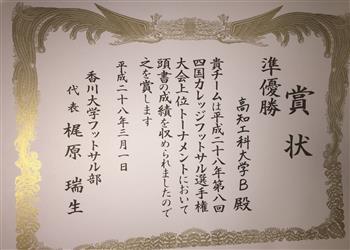 賞状
準優勝
高知工科大学B 殿
貴チームは平成二十八年第八回
四国カレッジフットサル選手権
大会上位トーナメントにおいて
頭書の成績を収められましたので
之を賞します
平成二十八年三月一日
香川大学フットサル部
代表 梶原 瑞生